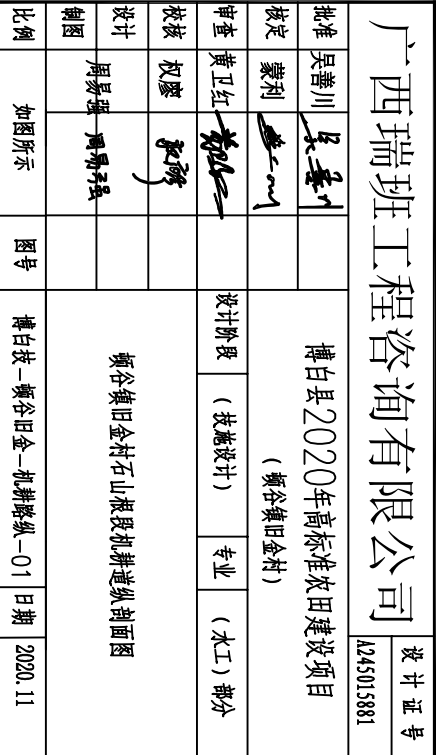 广西瑞班工程咨询有限公司
设计证号
A245015881
批准 吴善川 吴善川
核定 蒙利
审查 黄卫红
校核 权廖
设计 周易强 周易强
制图
比例 如图所示 图号
博白县2020年高标准农田建设项目
(顿谷镇旧金村)
设计阶段 (技施设计) 专业 (水工)部分
顿谷镇旧金村石山根段机耕道纵剖面图
博白技-顿谷旧金-机耕路纵-01 日期 2020.11